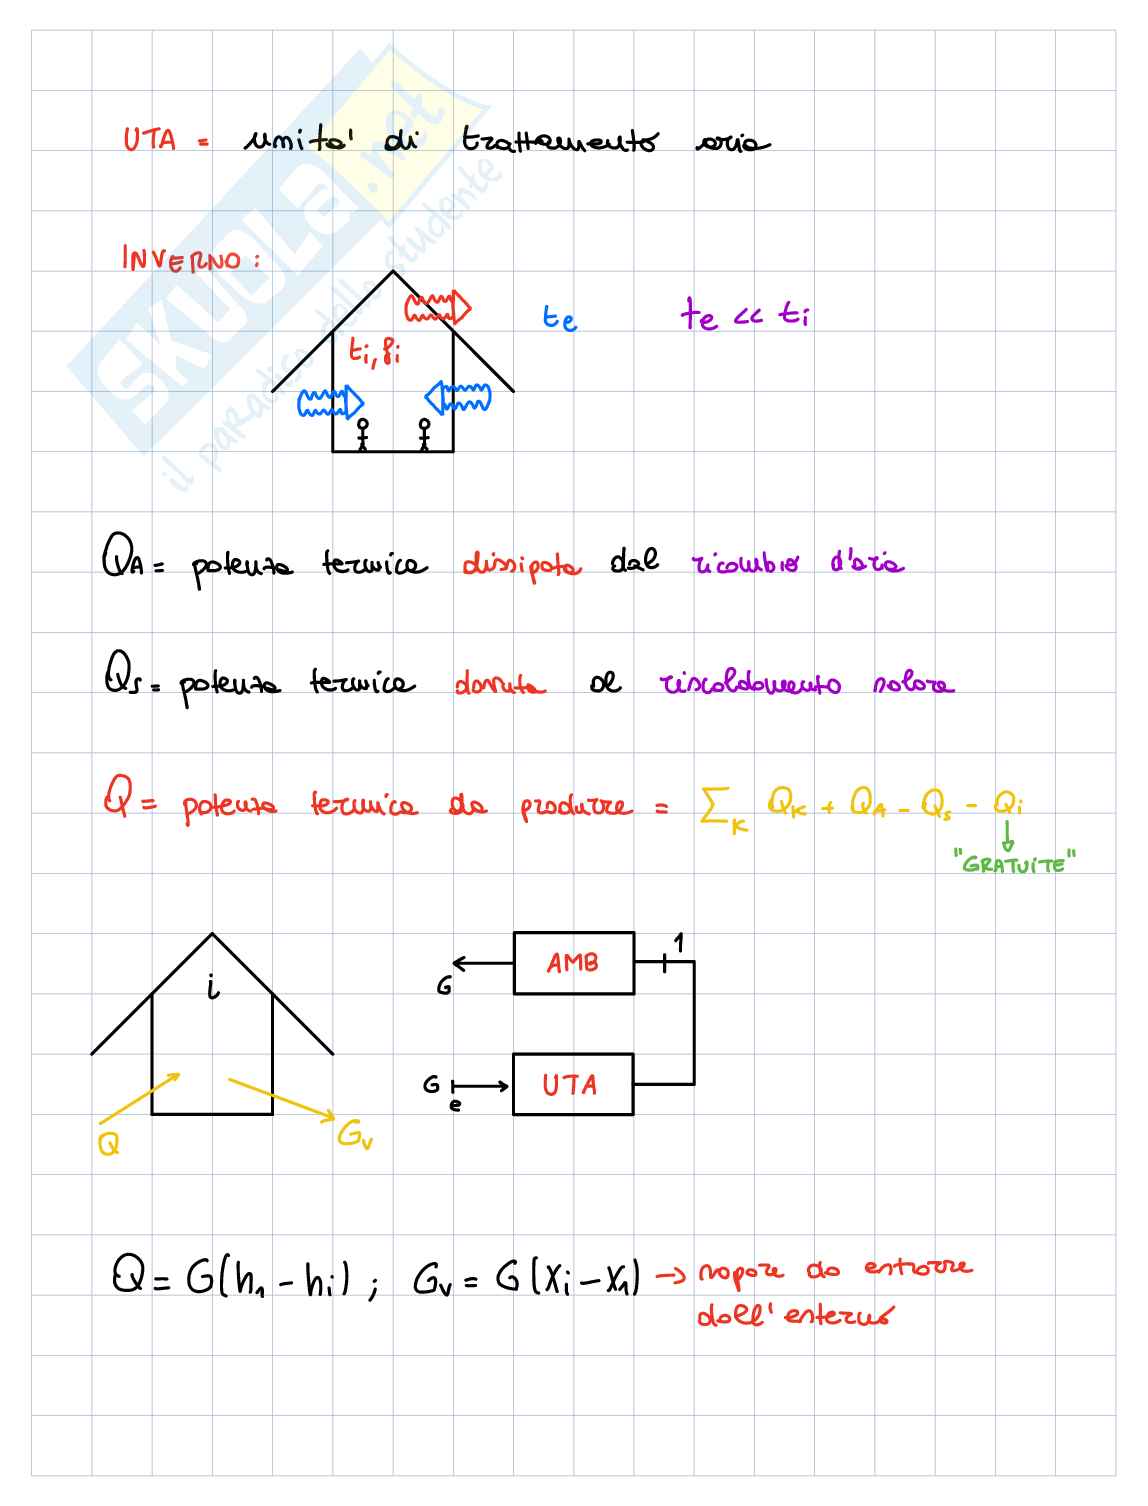 UTA = unita' di trattamento aria
SKUOLA.net
il paradiso dello studente
INVERNO:
te
te << ti
ti, φi
QA = potenza termica dissipata dal ricambio d'aria
Qs = potenza termica dovuta al riscaldamento solare
Q = potenza termica da produrre = ∑K QK + QA - Qs - Qi
"GRATUITE"
i
AMB
1
G
G
e
UTA
Q
Gv
Q = G(h1 - hi) ; Gv = G(Xi - X1) → vapore da entrare
dall'esterno